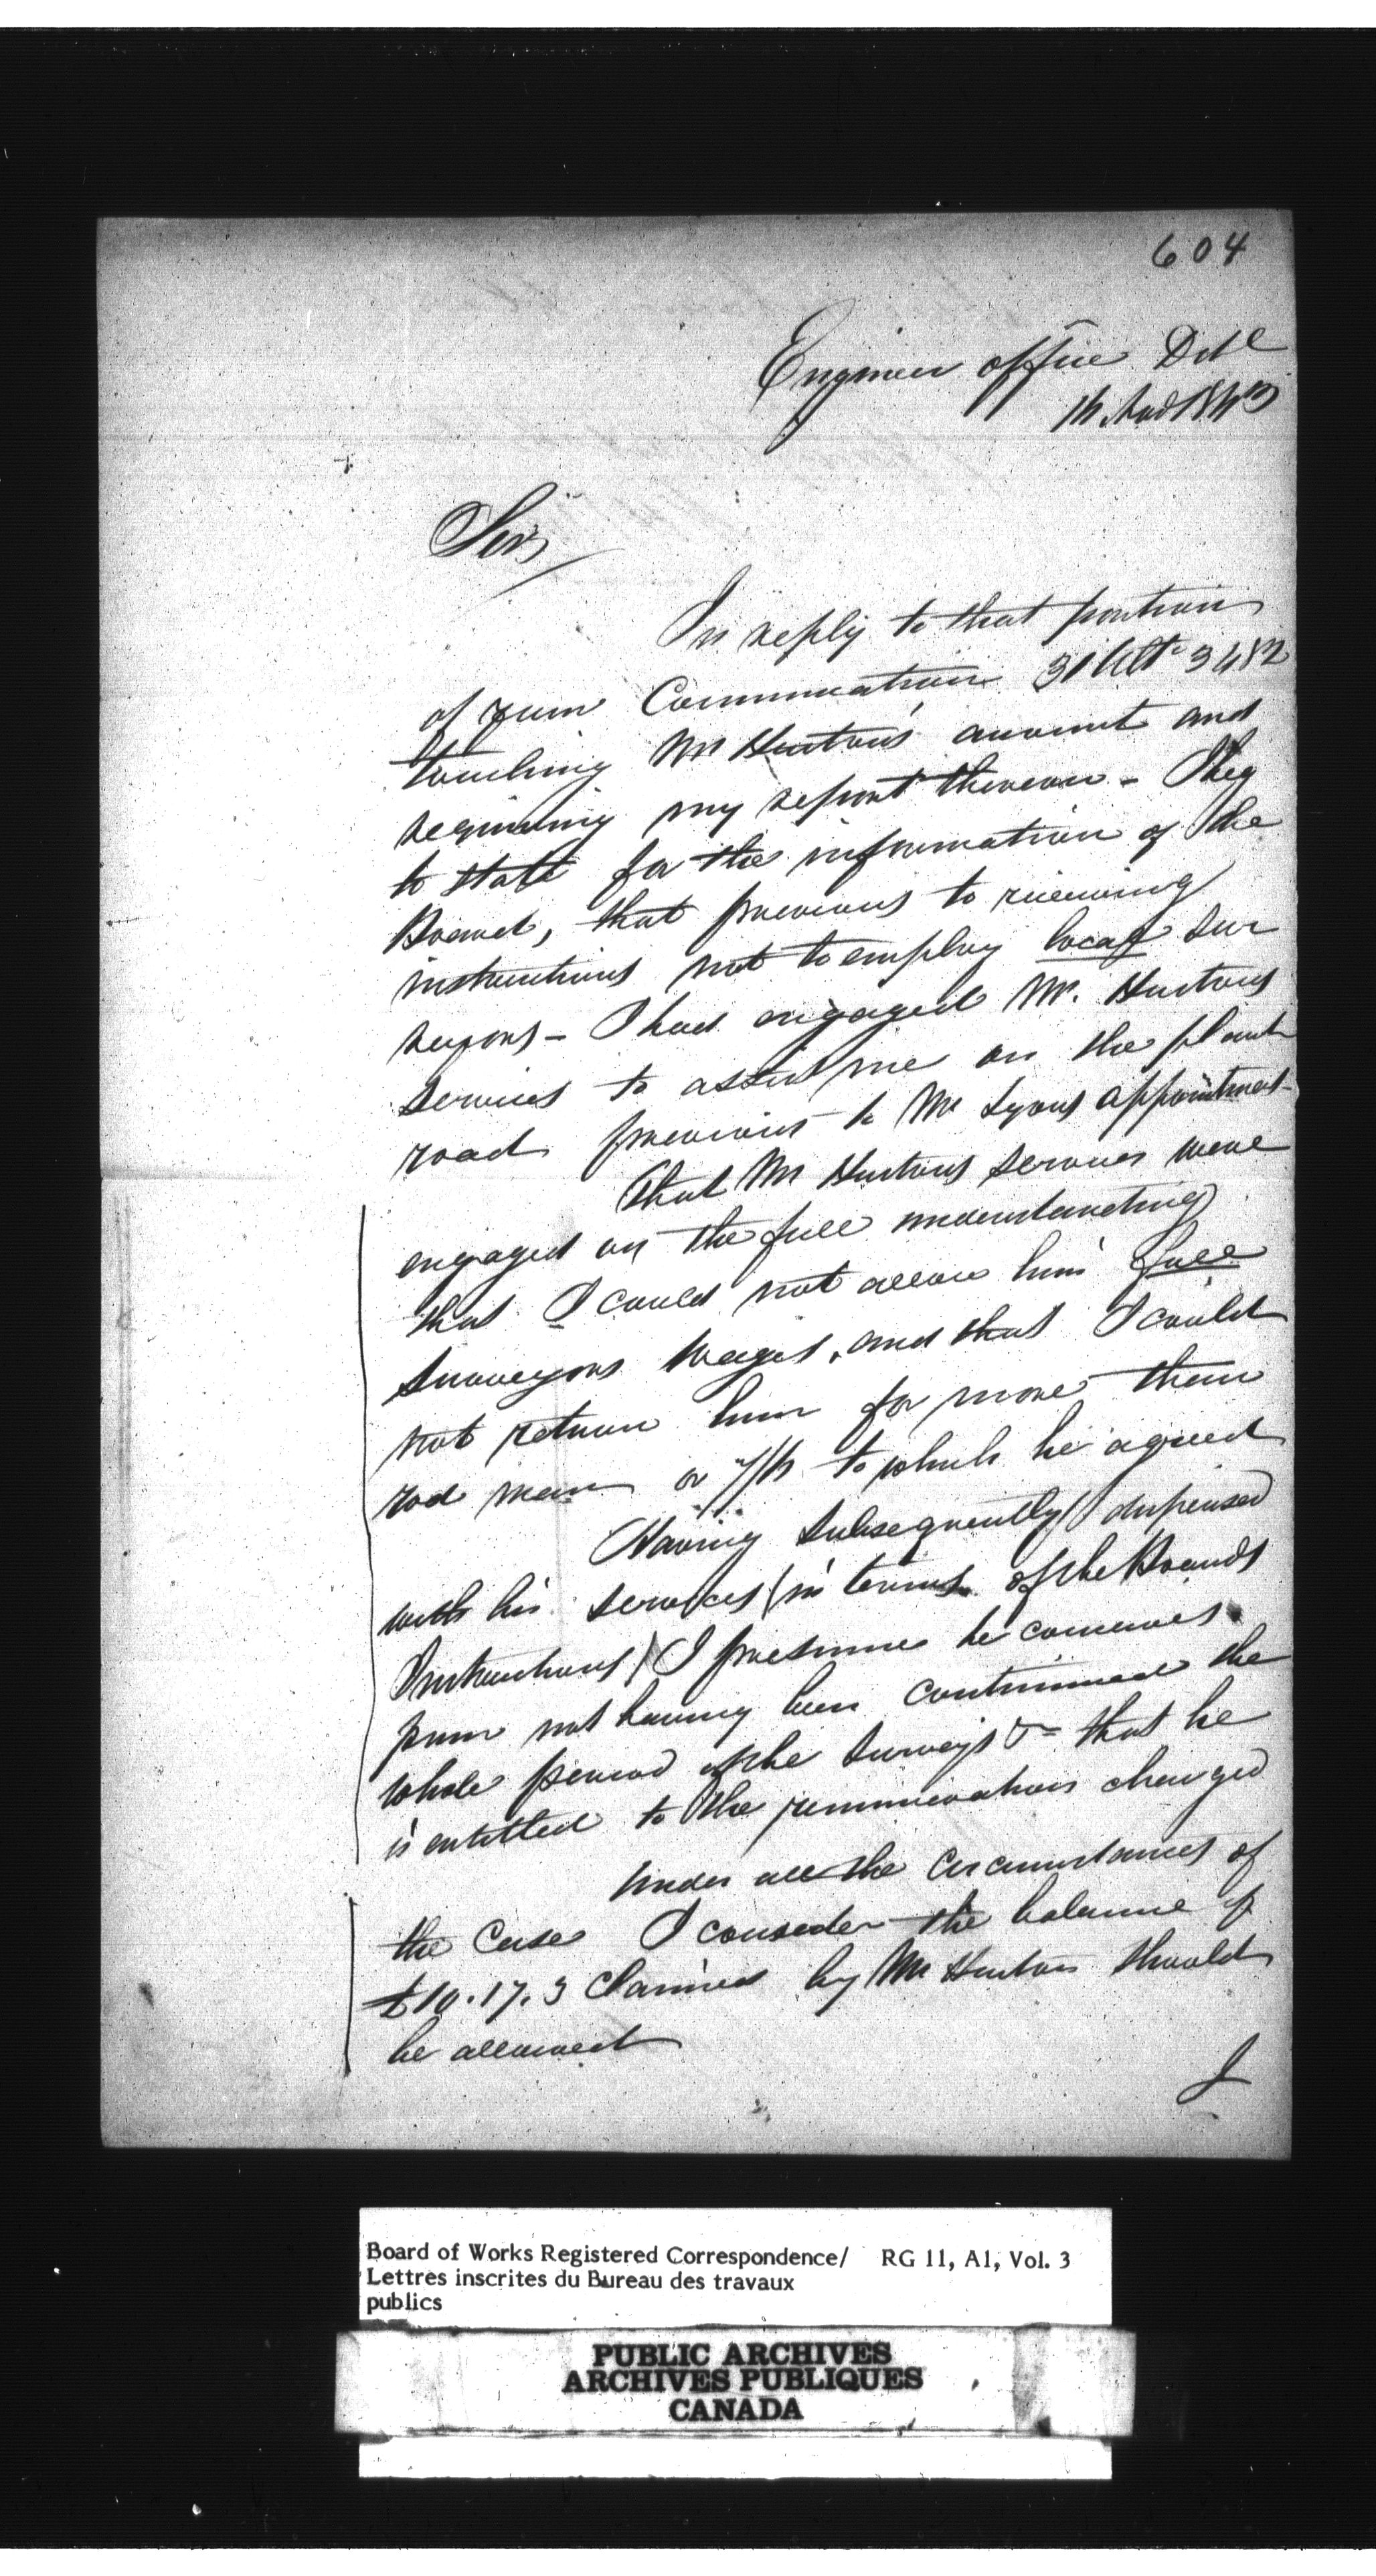 604
Engineer office
Sir,
In reply to that portion
of your Communication 31 Ult 3482
touching Mr Hustons account and
requiring my report thereon - I beg
to state for the information of the
Board, that previous to receiving
instructions not to employ local Sur
veyors - I had engaged Mr. Hustons
services to assist me on the plank
road previous to Mr Lyons appointment -
That Mr Hustons services were
engaged on the full understanding
that I could not allow him full
surveyors wages, and that I could
not return him for more than
rod man or 7/6 to which he agreed
Having subsequently dispensed
with his services (in terms of the Boards
Instructions) I presume he conceives
from not having been continued the
whole period of the Surveys &c that he
is entitled to the remuneration charged
Under all the circumstances of
the case I consider the balance of
£10.17.3 claimed by Mr Huston should
be allowed
I
Board of Works Registered Correspondence/ RG 11, A1, Vol. 3
Lettres inscrites du Bureau des travaux
publics
PUBLIC ARCHIVES
ARCHIVES PUBLIQUES
CANADA